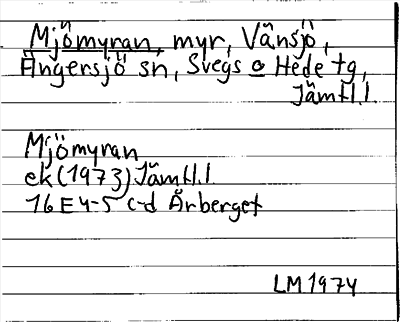 Mjömyran, myr, Vänsjö,
Ängersjö sn, Svegs o Hede tg,
Jämtl.l.
Mjömyran
ek (1973) Jämtl.l
16 E 4-5 c-d Årberget
LM 1974